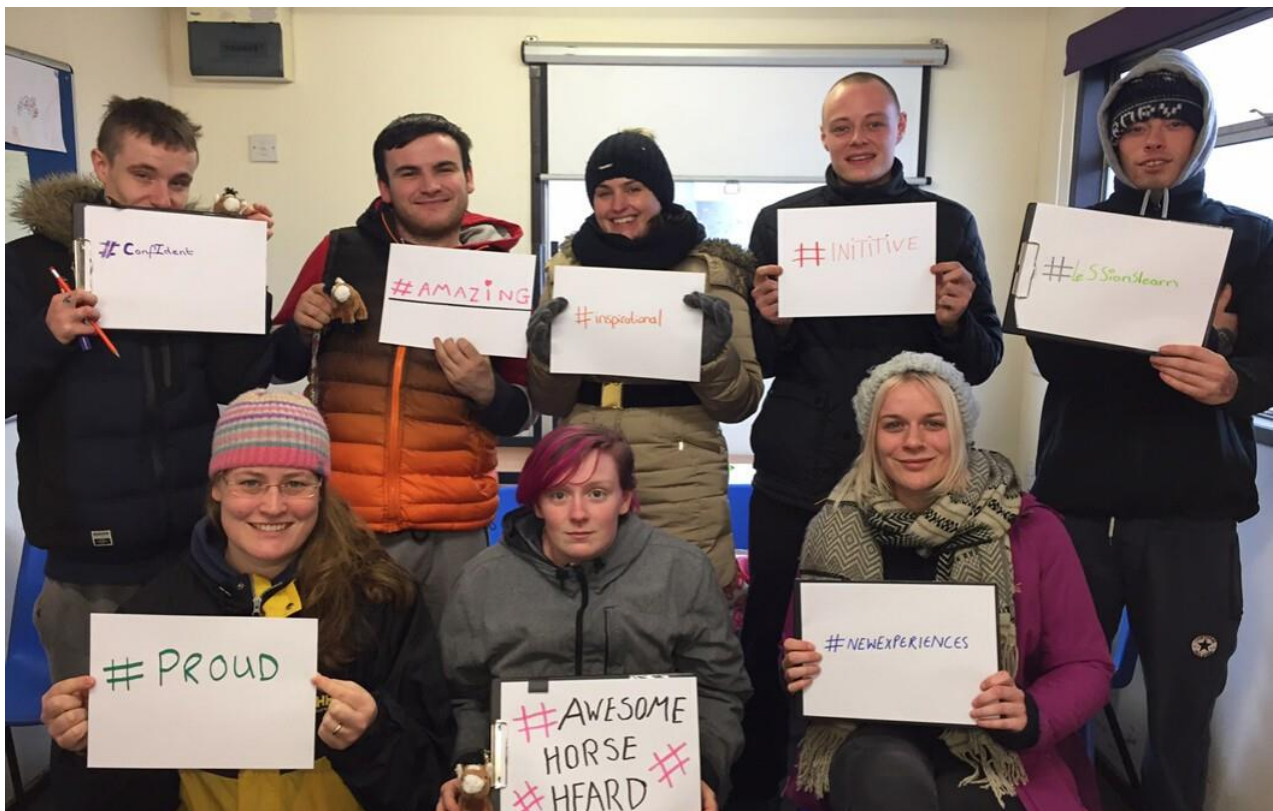 #ConfIdent
#AMAZiNG
#inspirational
#INITITIVE
#LeSSionslearn
#PROUD
#AWESOME
HORSE #
# HEARD
#NEWEXPERIENCES